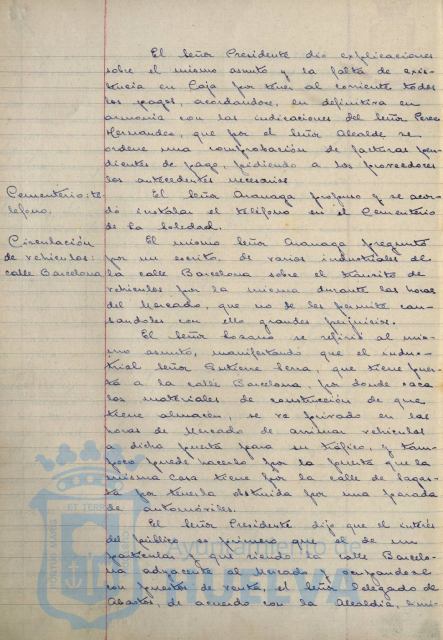 El Señor Presidente dio explicaciones
sobre el mismo asunto y la falta de exis-
tencia en Caja por tener al corriente todos
los pagos, acordandose, en definitiva en
armonia con las indicaciones del Señor Perez
Hernandez, que por el Señor Alcalde se
ordene una comprobación de facturas pen-
dientes de pago, pidiendo a los proveedores
los antecedentes necesarios
Cementerio: te-
léfono.
El Señor Aranaga propuso y se acor-
dó instalar el teléfono en el Cementerio
de la Soledad.
Circulación
de vehiculos:
calle Barcelona
El mismo Señor Aranaga preguntó
por un escrito de varios industriales de
la calle Barcelona sobre el tránsito de
vehiculos por la misma durante las horas
del Mercado, que no se les permite cau-
sandoles con ello grandes perjuicios.
El Señor Lozano se refirió al mis-
mo asunto, manifestando que el indus-
trial Señor Gutierrez Serra, que tiene puer-
ta a la calle Barcelona, por donde saca
los materiales de construcción de que
tiene almacén, se ve privado en las
horas de Mercado de arrimar vehiculos
a dicha puerta para su tráfico, y tam-
poco puede hacerlo por la puerta que la
misma casa tiene por la calle de Sagas-
ta por tenerla obstruida por una parada
de automóviles.
El Señor Presidente dijo que el interés
del público es primero que el de un
particular y que siendo la calle Barcelo-
na adyacente al Mercado y ocupandose
con puestos de venta, el Señor Delegado de
Abastos, de acuerdo con la Alcaldia,
Ayuntamiento de
HUELVA
PORTUS MARIS ET TERRAE